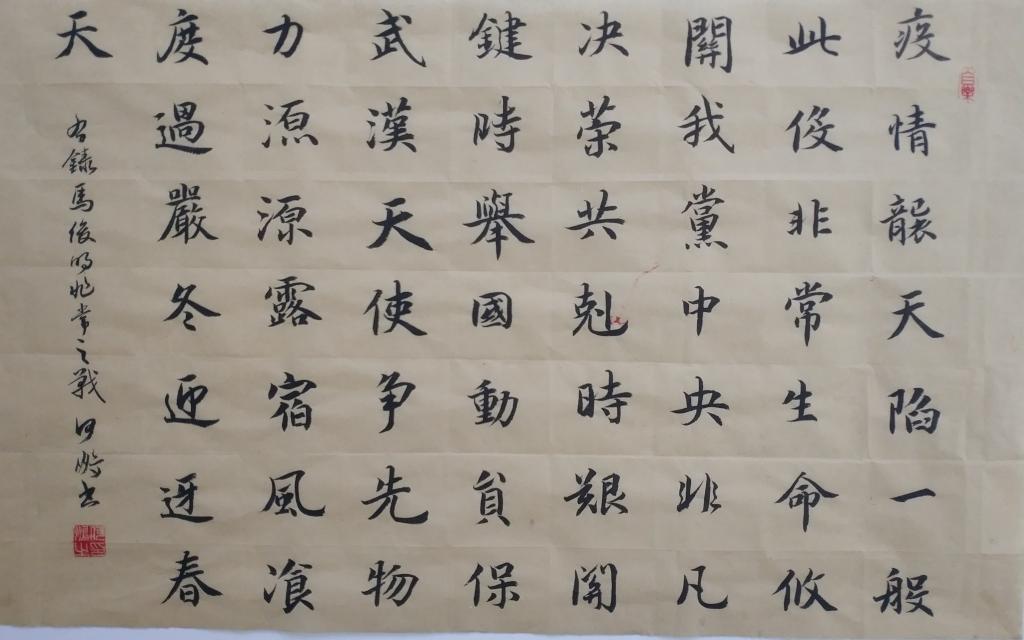 疫情襲天陷一般
此役非常生命攸
關我黨中央非凡
决策共剋時艱関
鍵時舉國動員保
武漢天使争先物
力源源露宿風飡
度過嚴冬迎迓春
天
右錄馬俊明非常之戰 书